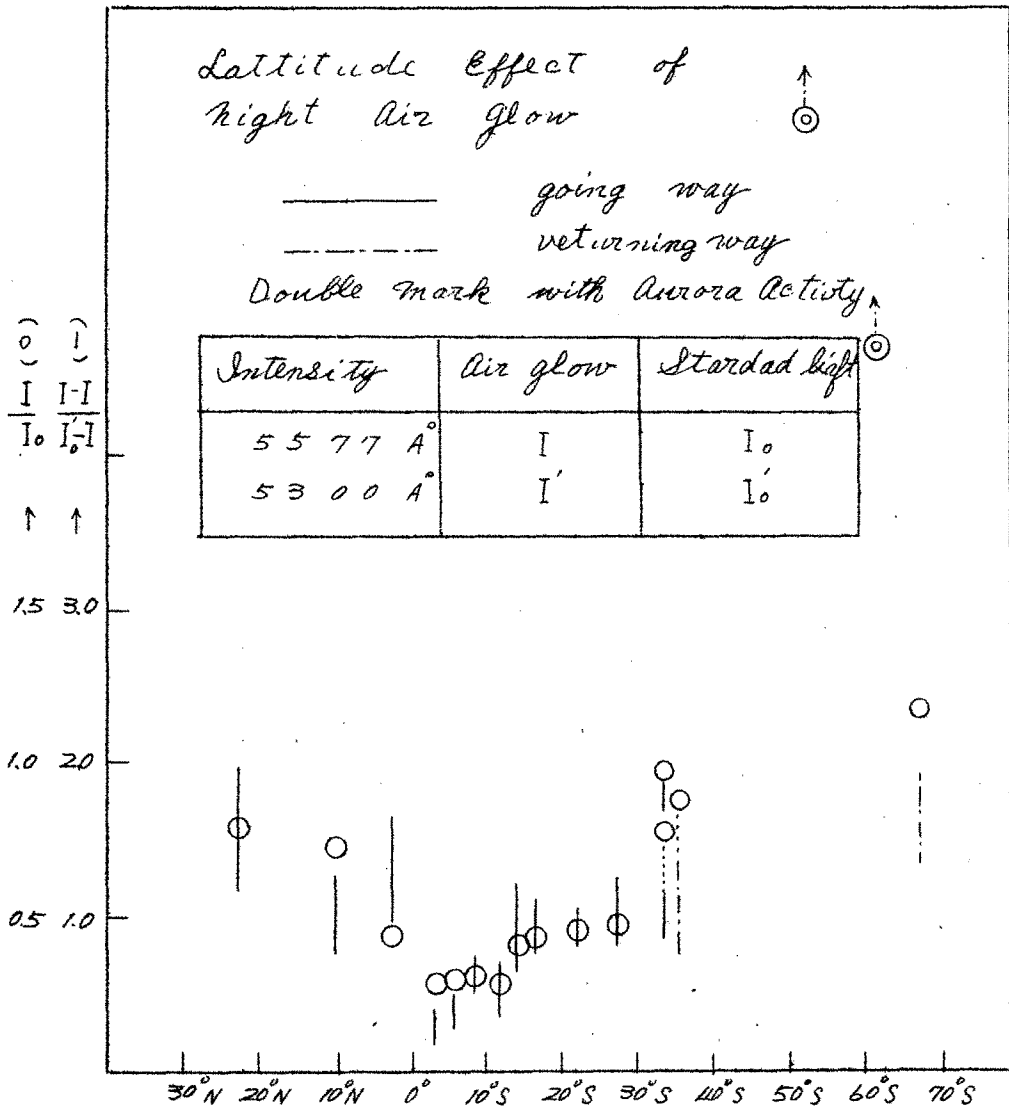 Lattitude Effect of
Night Air Glow
going way
returning way
Double Mark with Aurora Activty
Intensity Air glow Stardad light
5577 A° I I₀
5300 A° I' I₀'
(o) (|)
I/I₀ I-I'/I₀'-I
↑ ↑
1.5 3.0
1.0 2.0
0.5 1.0
30°N 20°N 10°N 0° 10°S 20°S 30°S 40°S 50°S 60°S 70°S